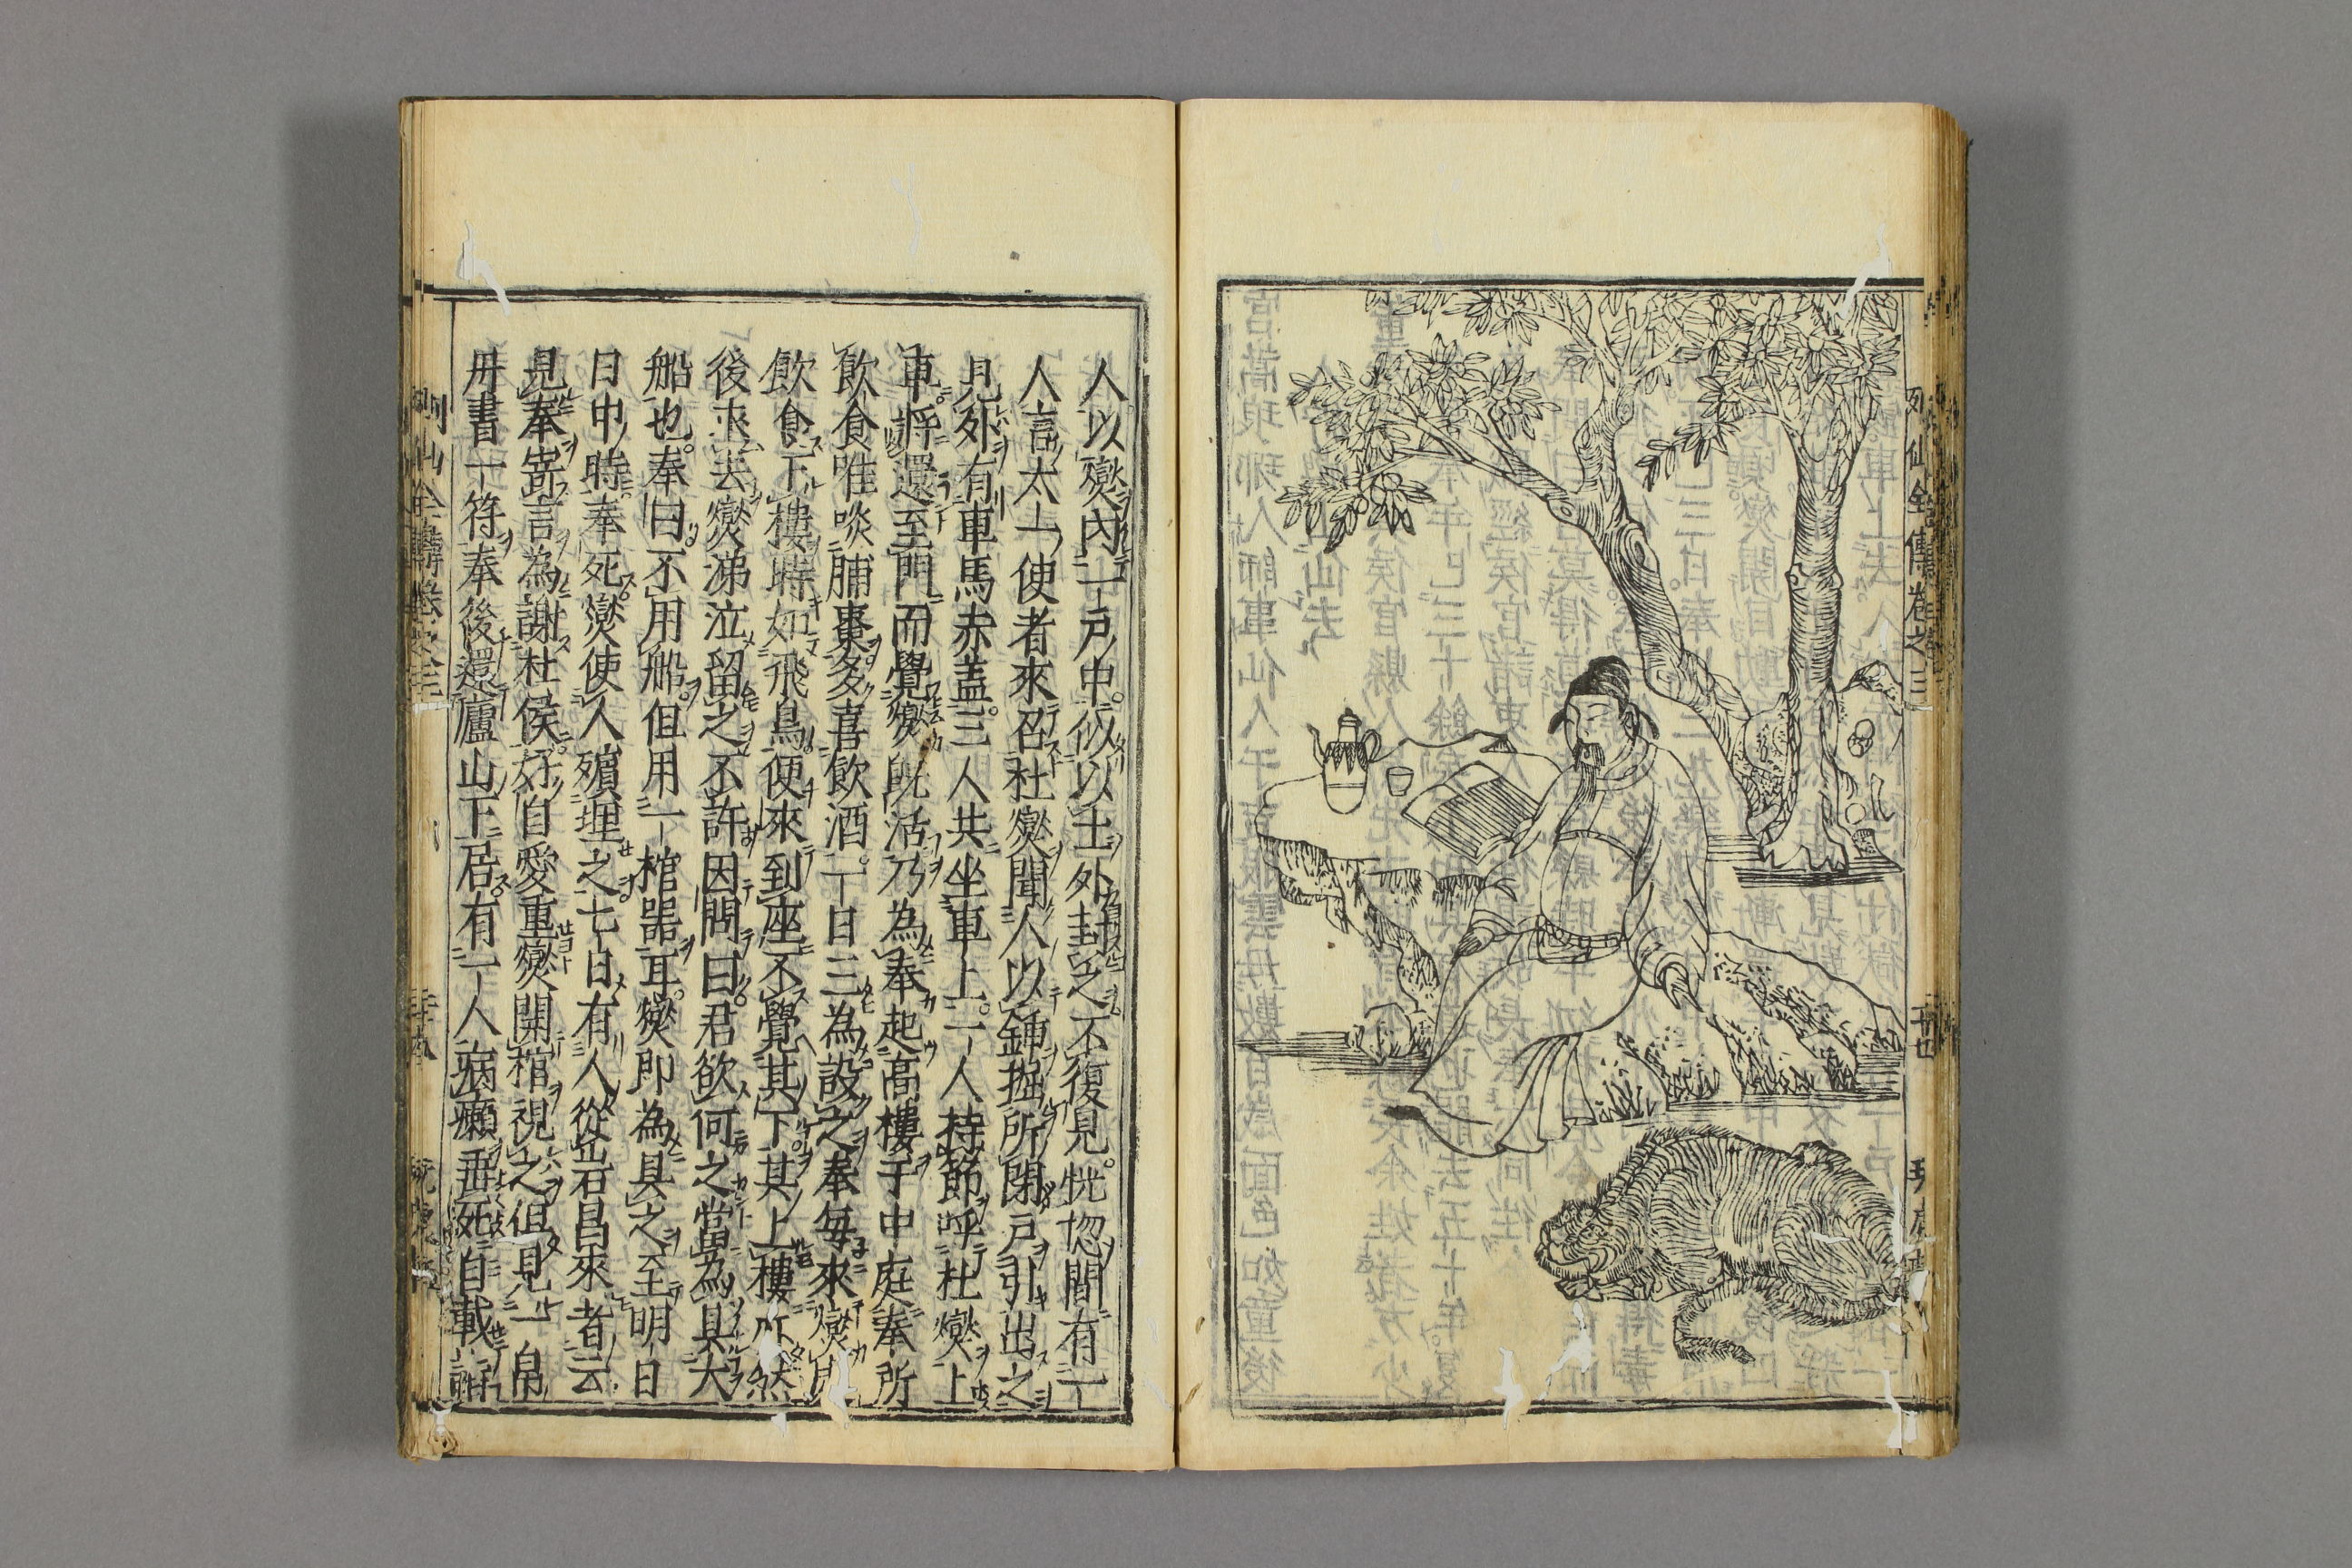 列仙全傳卷之三
人以燮内一戸中似以土外封之不復見恍惚間有一
人言太一使者來召杜燮聞人以鍤掘所閉戸引出之
見外有車馬赤蓋三人共坐車上一人持節呼杜燮上
車將還至門而覺燮既活乃為奉起高樓于中庭奉所
飲食唯啖脯棗多喜飲酒一日三為設之奉每來燮處
飲食下樓時如飛鳥便來到座不覺其下其上樓亦然
後求去燮涕泣留之不許因問曰君欲何之當為具大
船也奉曰不用船但用一棺器耳燮即為具之至明日
日中時奉死燮使人殯埋之七日有人從容昌來者云
見奉寄言為謝杜侯好自愛重燮開棺視之但見一帛
一符奉後還廬山下居有一人病癩垂死自載詣
列仙全傳卷之三